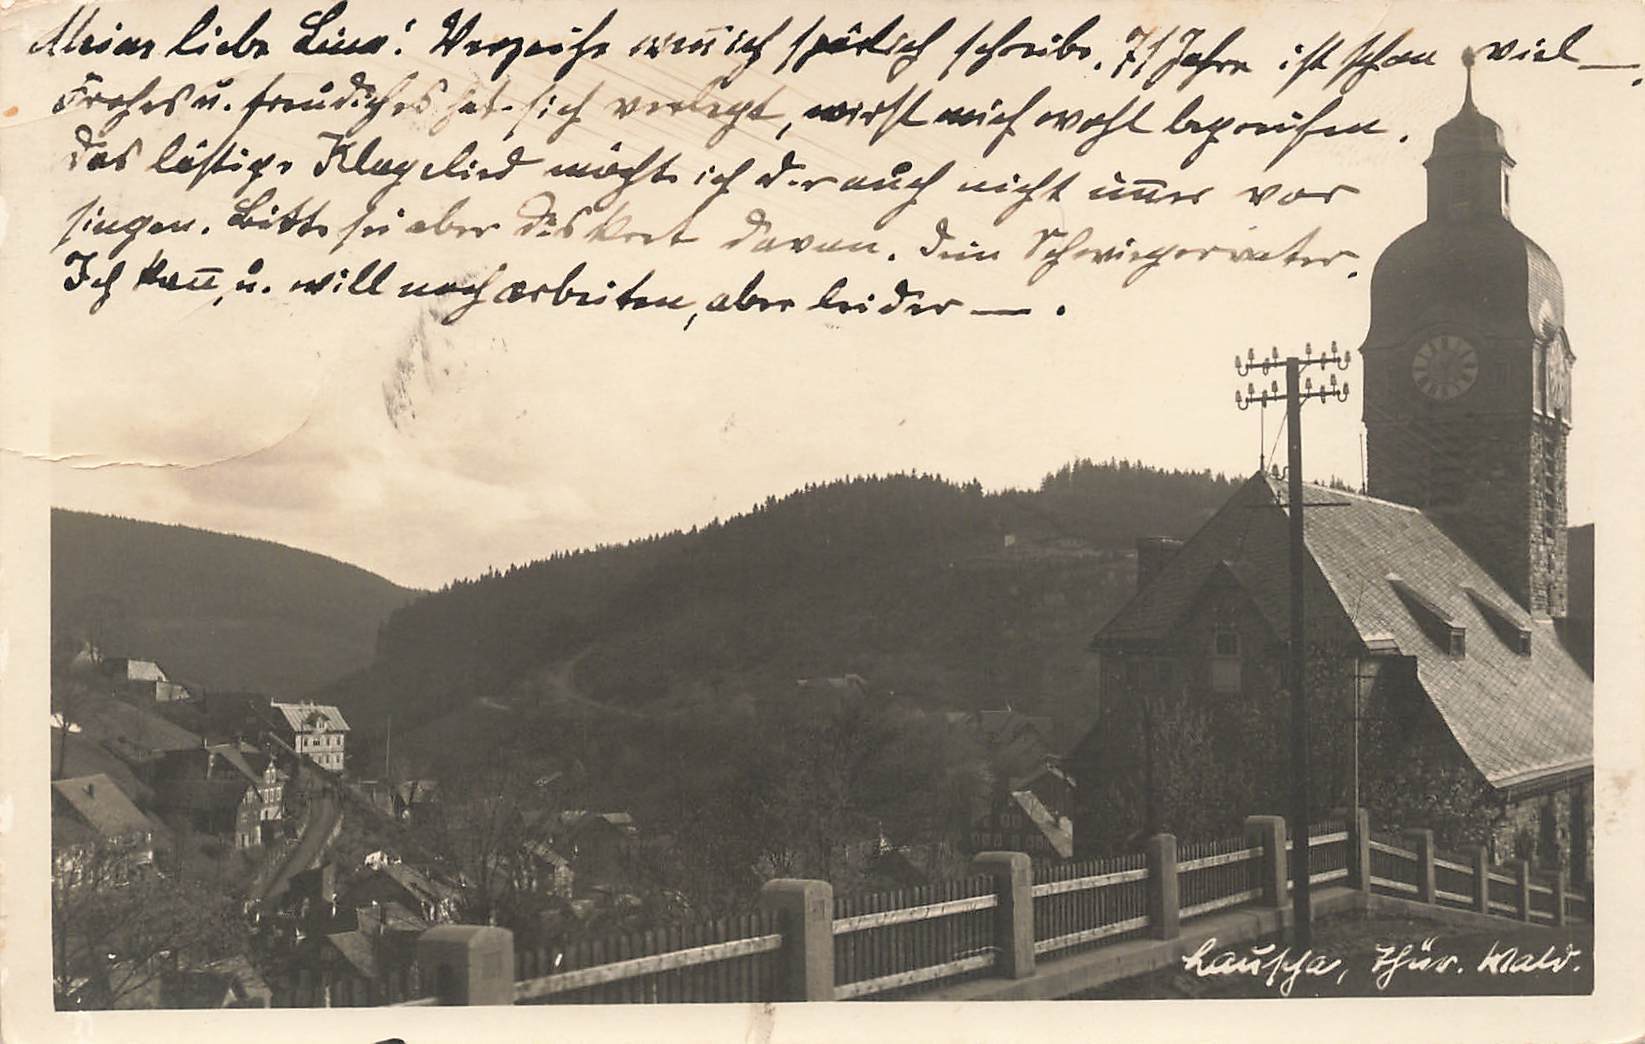 Meine liebe Lina! Verzeihe wenn ich spärlich schreibe. 71 Jahre ist schon viel —.
Frohes u. freudiches hat sich verlegt, wirst mich wohl begreifen.
Das lästige Klagelied möchte ich dir auch nicht immer vor
singen. Bitte sei aber diskret davon. Dein Schwiegervater.
Ich kann, u. will noch arbeiten, aber leider — .
Lauscha, Thür. Wald.